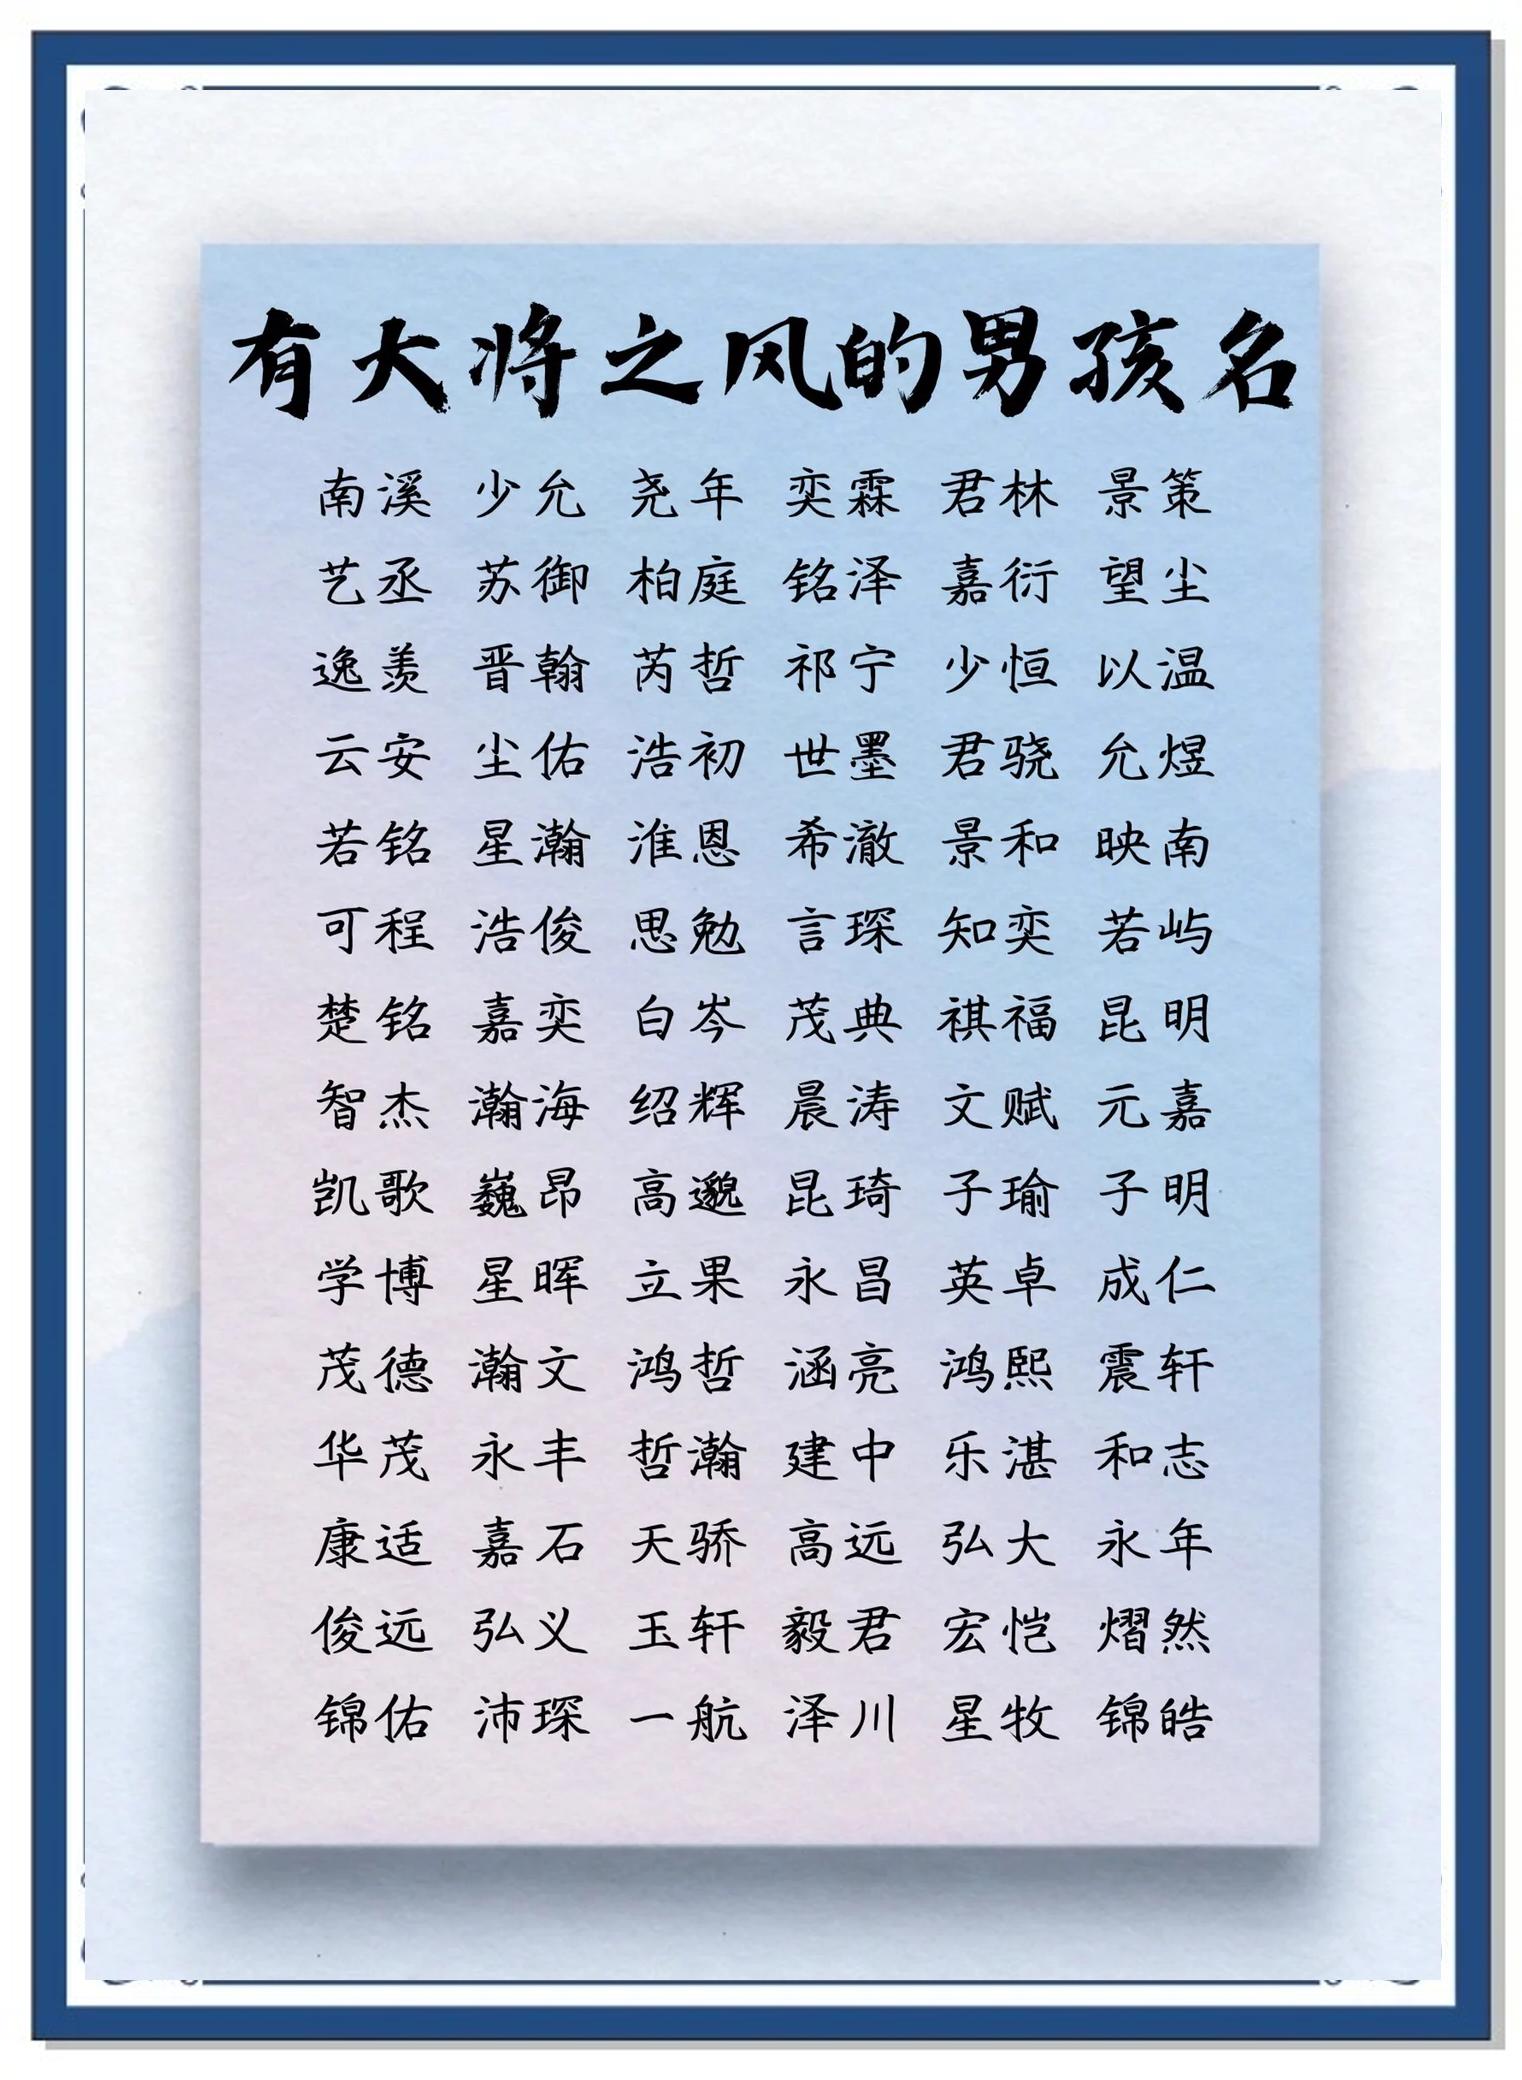 有大将之风的男孩名
南溪 少允 尧年 奕霖 君林 景策
艺丞 苏御 柏庭 铭泽 嘉衍 望尘
逸羡 晋翰 芮哲 祁宁 少恒 以温
云安 尘佑 浩初 世墨 君骁 允煜
若铭 星瀚 淮恩 希澈 景和 映南
可程 浩俊 思勉 言琛 知奕 若屿
楚铭 嘉奕 白岑 茂典 祺福 昆明
智杰 瀚海 绍辉 晨涛 文赋 元嘉
凯歌 巍昂 高邈 昆琦 子瑜 子明
学博 星晖 立果 永昌 英卓 成仁
茂德 瀚文 鸿哲 涵亮 鸿熙 震轩
华茂 永丰 哲瀚 建中 乐湛 和志
康适 嘉石 天骄 高远 弘大 永年
俊远 弘义 玉轩 毅君 宏恺 熠然
锦佑 沛琛 一航 泽川 星牧 锦皓